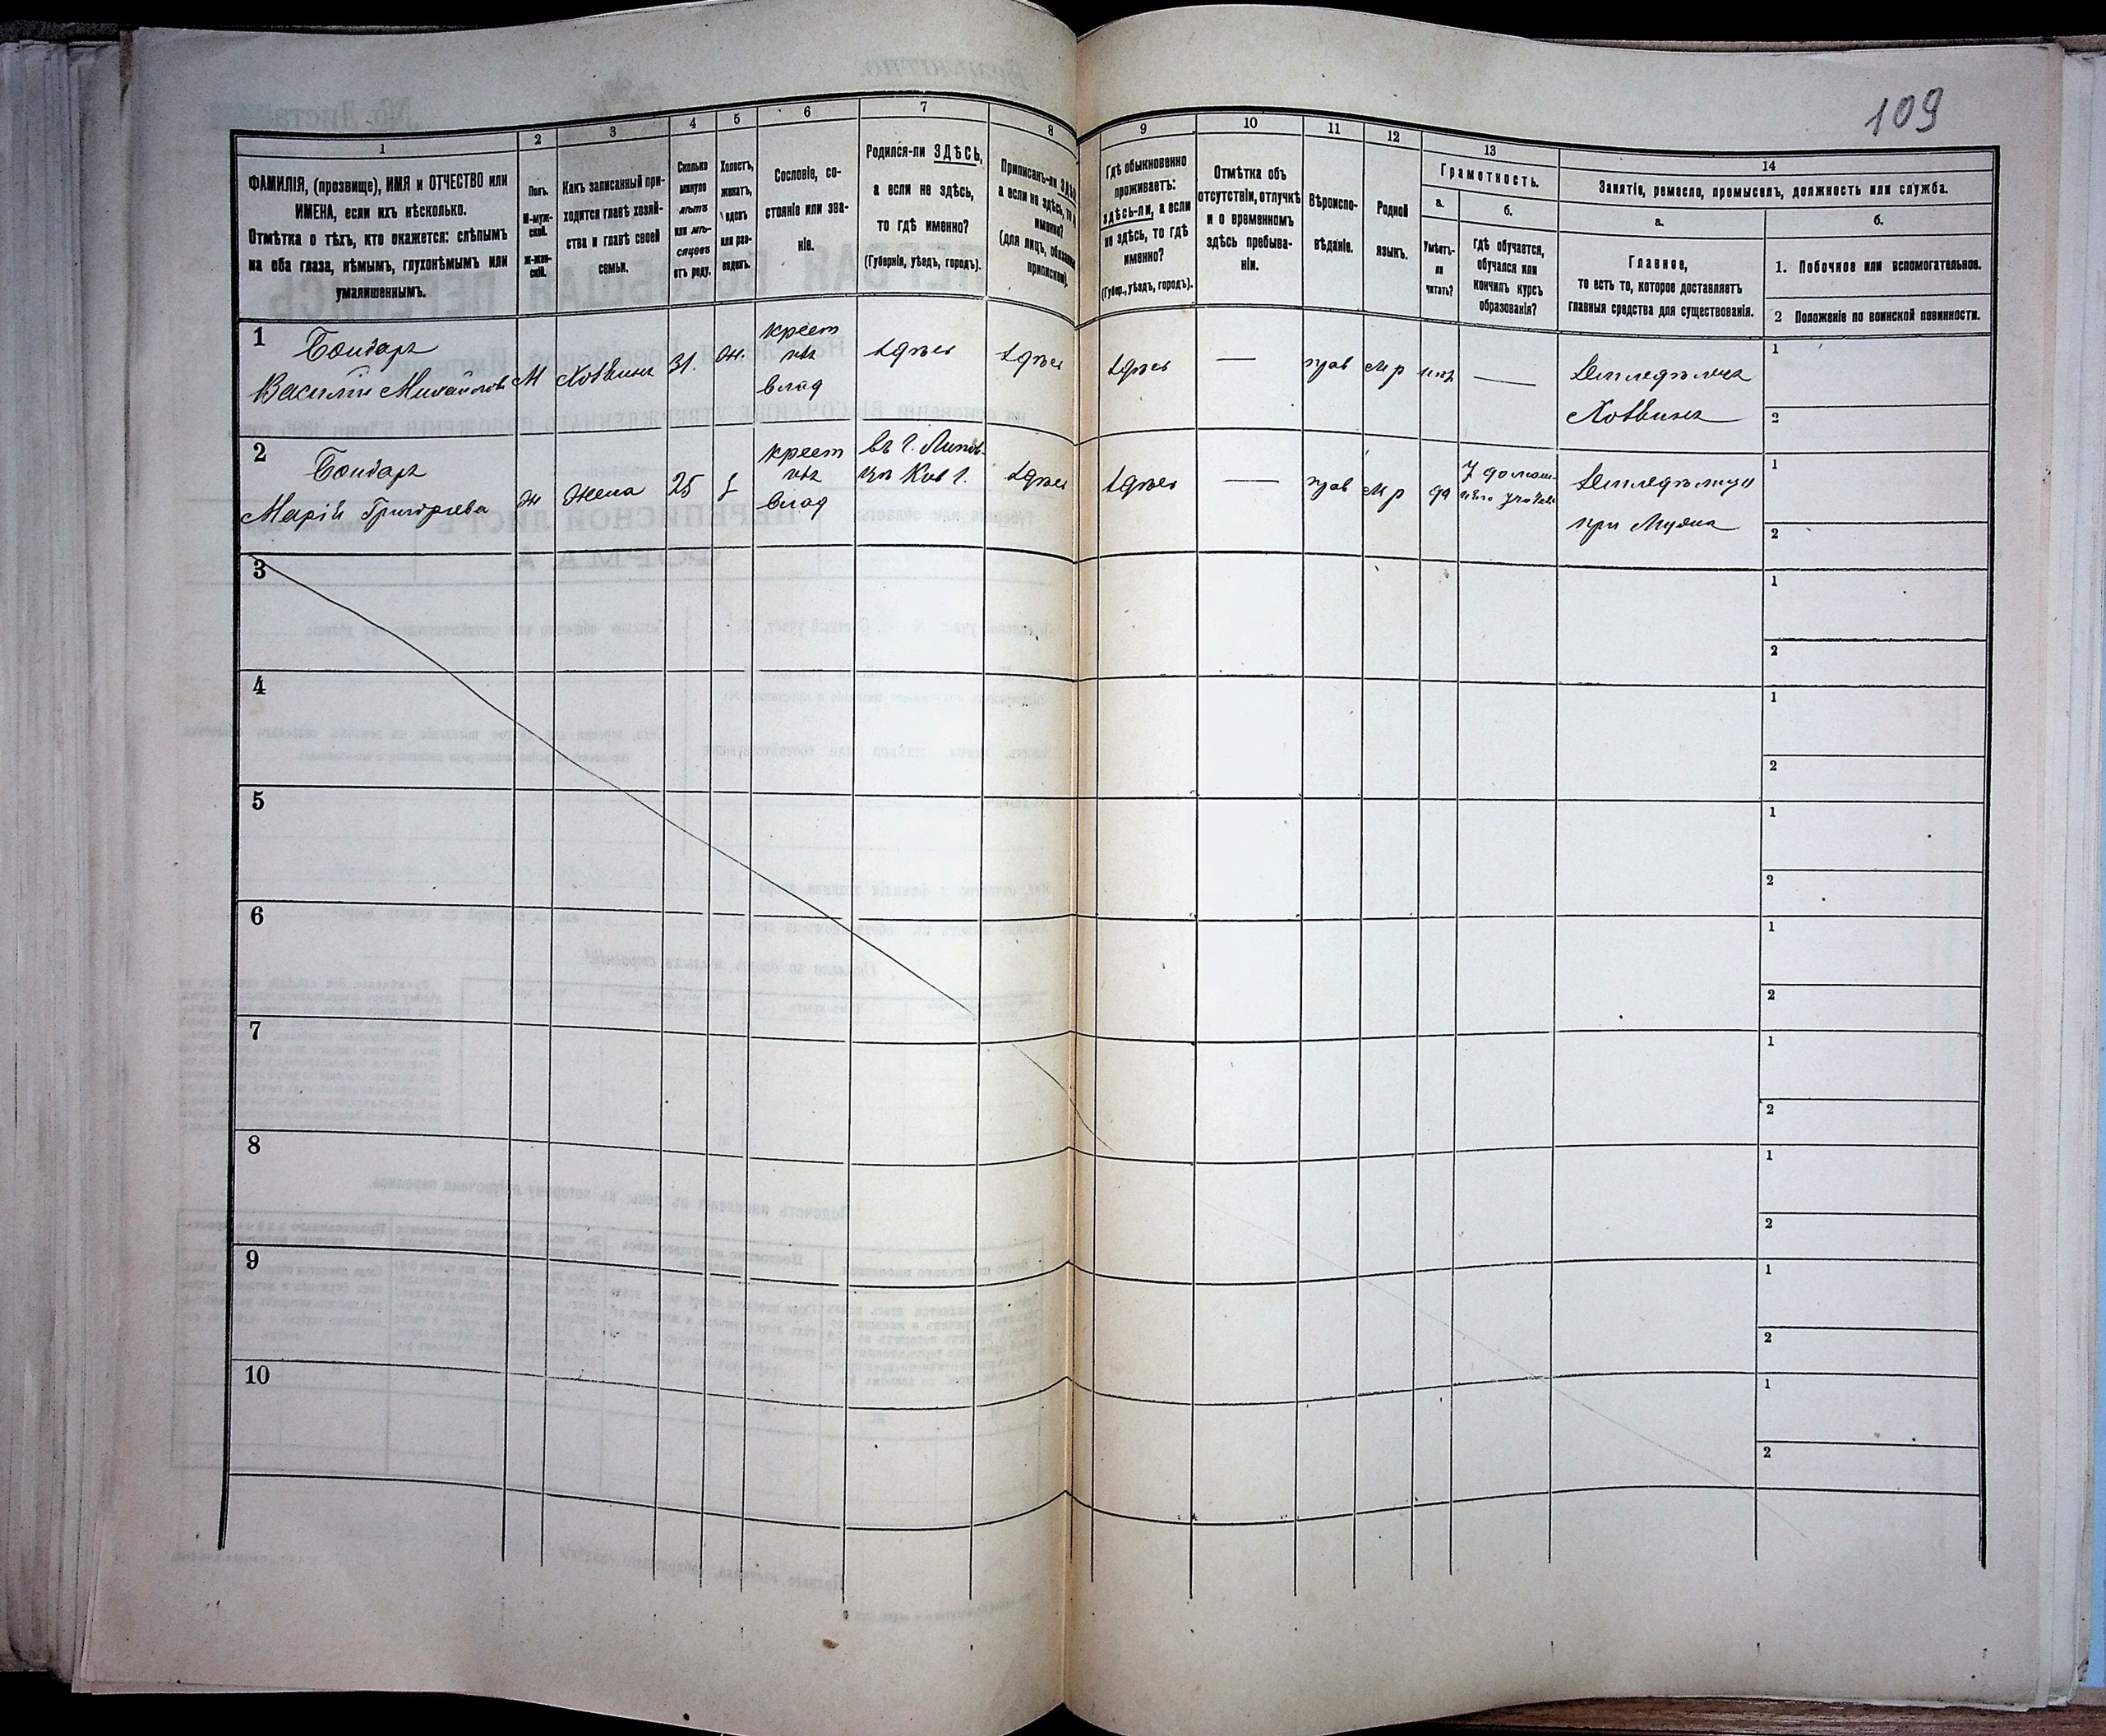 109
1
2
3
4
5
6
7
8
9
10
11
12
13
14
ФАМИЛІЯ, (прозвище), ИМЯ и ОТЧЕСТВО или
ИМЕНА, если ихъ нѣсколько.
Отмѣтка о тѣхъ, кто окажется: слѣпымъ
на оба глаза, нѣмымъ, глухонѣмымъ или
умалишеннымъ.
Полъ.
М-муж-
ской.
Ж-жен-
скій.
Какъ записанный при-
ходится главѣ хозяй-
ства и главѣ своей
семьи.
Сколько
минуло
лѣтъ
или мѣ-
сяцевъ
отъ роду.
Холостъ,
женатъ,
вдовъ
или раз-
веденъ.
Сословіе, со-
стояніе или зва-
ніе.
Родился-ли ЗДѢСЬ,
а если не здѣсь,
то гдѣ именно?
(Губернія, уѣздъ, городъ).
Приписанъ-ли
а если не здѣсь,
именно?
(для лицъ,
припискою).
Гдѣ обыкновенно
проживаетъ:
здѣсь-ли, а если
не здѣсь, то гдѣ
именно?
(Губер., уѣздъ, городъ).
Отмѣтка объ
отсутствіи, отлучкѣ
и о временномъ
здѣсь пребыва-
ніи.
Вѣроиспо-
вѣданіе.
Родной
языкъ.
Грамотность.
а.
Умѣетъ-
ли
читать?
б.
гдѣ обучается,
обучался или
кончилъ курсъ
образованія?
Занятіе, ремесло, промыселъ, должность или служба.
а.
Главное,
то есть то, которое доставляетъ
главныя средства для существованія.
б.
1. Побочное или вспомогательное.
2 Положеніе по воинской повинности.
1
Бондарь
Василій Михайловъ
М
Хозяинъ
31.
ж.
крест
изъ
влад
здѣсь
здѣсь
здѣсь
—
прав
мр
нѣтъ
—
Земледѣлецъ
Хозяинъ
1
2
2
Бондарь
Марія Григорьева
ж
жена
25
з
крест
изъ
влад
въ г. Липов-
цѣ Киев г.
здѣсь
здѣсь
—
прав
мр
да
У домаш-
Земледѣлица
при мужѣ
1
2
3
1
2
4
1
2
5
1
2
6
1
2
7
1
2
8
1
2
9
1
2
10
1
2